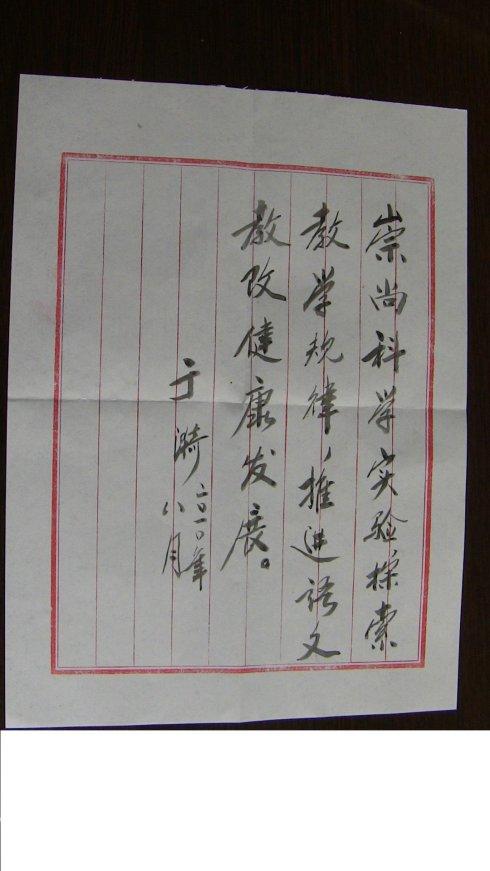 崇尚科学实验，探索
教学规律，推进语文
教改健康发展。
于漪
二〇一〇年
八月